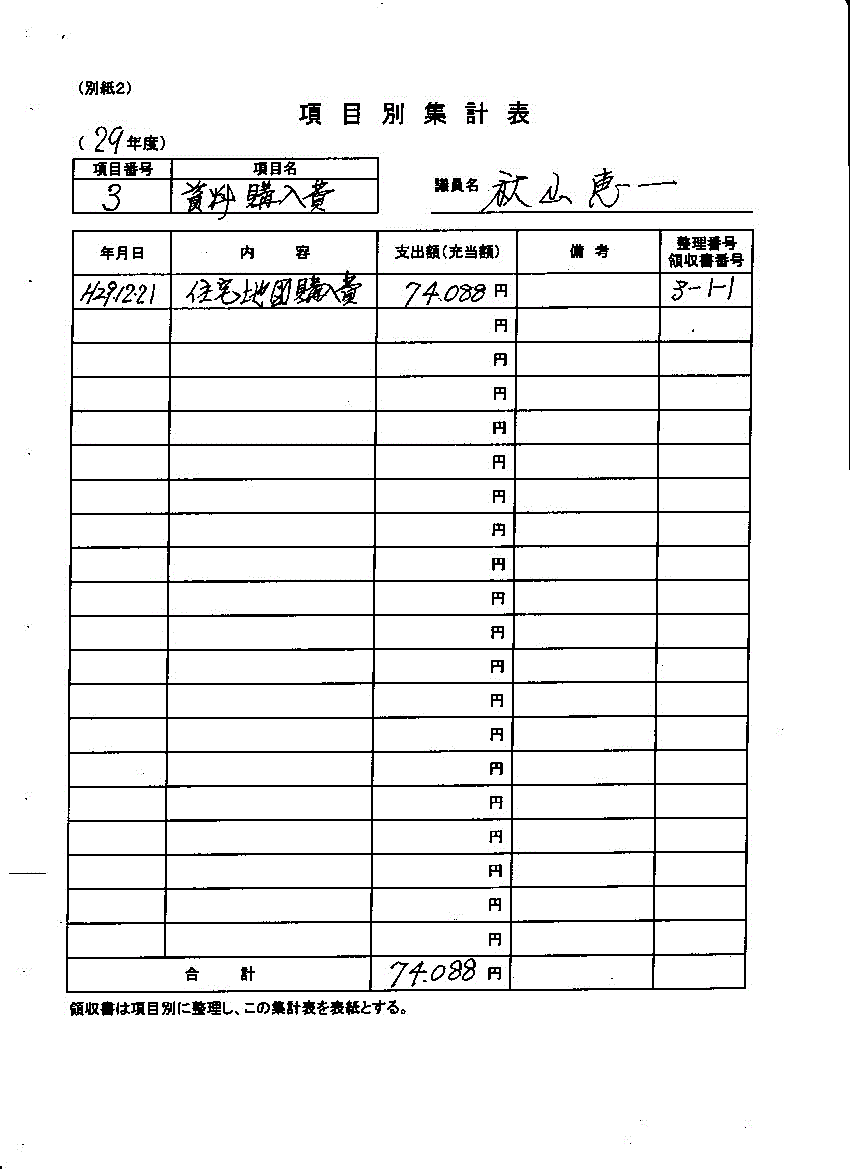 （別紙2）
項目別集計表
（29年度）
項目番号 項目名
3 資料購入費
議員名 秋山恵一
年月日 内容 支出額（充当額） 備考 整理番号 領収書番号
H29.12.21 住宅地図購入費 74.088円 3-1-1
円
円
円
円
円
円
円
円
円
円
円
円
円
円
円
円
円
円
円
合計 74.088円
領収書は項目別に整理し、この集計表を表紙とする。